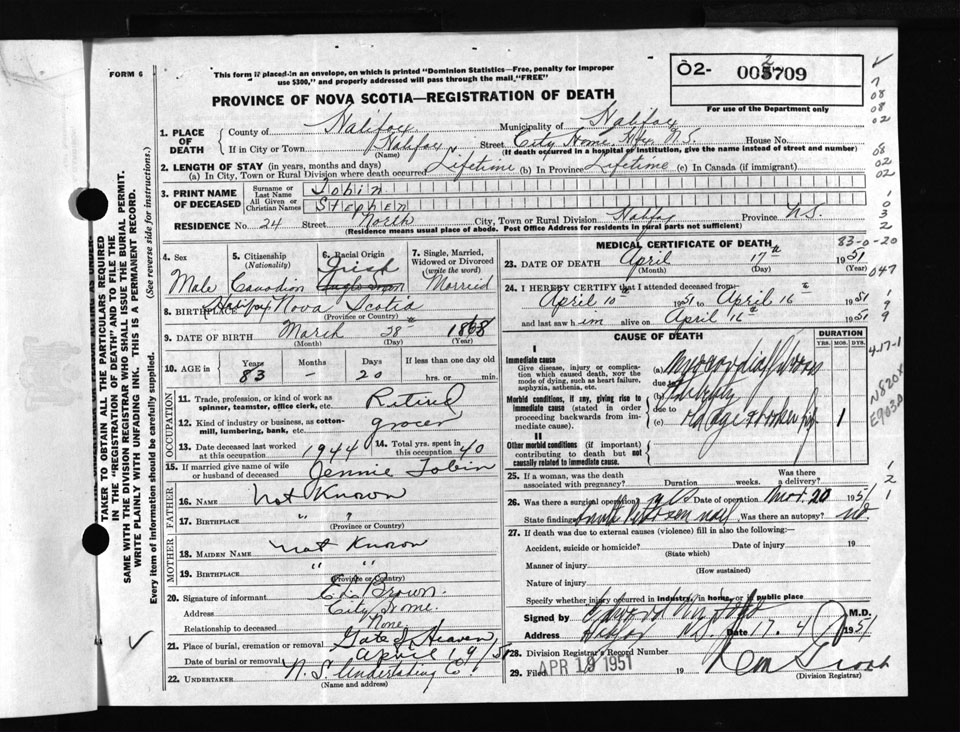 FORM 6
This form if placed in an envelope, on which is printed "Dominion Statistics—Free, penalty for improper
use $300," and properly addressed will pass through the mail, "FREE"
O2- 002709
For use of the Department only
PROVINCE OF NOVA SCOTIA—REGISTRATION OF DEATH
1. PLACE OF DEATH
County of Halifax Municipality of Halifax
If in City or Town Halifax (Name) Street City Home Hfx. N.S. House No.
(If death occurred in a hospital or institution, give the name instead of street and number)
2. LENGTH OF STAY (in years, months and days)
(a) In City, Town or Rural Division where death occurred Lifetime (b) In Province Lifetime (c) In Canada (if immigrant)
3. PRINT NAME OF DECEASED
Surname or Last Name Tobin
All Given or Christian Names Stephen
RESIDENCE No. 24 Street North City, Town or Rural Division Halifax Province N.S.
(Residence means usual place of abode. Post Office Address for residents in rural parts not sufficient)
4. Sex Male
5. Citizenship (Nationality) Canadian
6. Racial Origin Irish
7. Single, Married, Widowed or Divorced (write the word) Married
8. BIRTHPLACE Halifax Nova Scotia
(Province or Country)
9. DATE OF BIRTH March 28th 1868
(Month) (Day) (Year)
10. AGE in Years 83 Months – Days 20 If less than one day old hrs. or min.
OCCUPATION
11. Trade, profession or kind of work as spinner, teamster, office clerk, etc. Retired
12. Kind of industry or business, as cotton-mill, lumbering, bank, etc. grocer
13. Date deceased last worked at this occupation 1944 14. Total yrs. spent in this occupation 40
15. If married give name of wife or husband of deceased Jennie Tobin
FATHER
16. NAME Not Known
17. BIRTHPLACE " "
(Province or Country)
MOTHER
18. MAIDEN NAME Not Known
19. BIRTHPLACE " "
(Province or Country)
20. Signature of informant Brown.
Address City Home.
Relationship to deceased None.
21. Place of burial, cremation or removal Gate of Heaven
Date of burial or removal April 19/51
22. UNDERTAKER N.S. Undertaking Co.
(Name and address)
MEDICAL CERTIFICATE OF DEATH
83-0-20
23. DATE OF DEATH April 17th 1951
(Month) (Day) (Year)
24. I HEREBY CERTIFY that I attended deceased from:
April 10th 1951 to April 16th 1951
and last saw him alive on April 16th 1951
CAUSE OF DEATH
DURATION
YRS. MOS. DYS.
I
Immediate cause
Give disease, injury or complication which caused death, NOT the mode of dying, such as heart failure, asphyxia, asthenia, etc.
(a)
due to
Morbid conditions, if any, giving rise to immediate cause (stated in order proceeding backwards from immediate cause).
(b)
due to
(c) old age & broken hip 1
II
Other morbid conditions (if important) contributing to death but not causally related to immediate cause.
25. If a woman, was the death associated with pregnancy? Duration weeks. Was there a delivery?
26. Was there a surgical operation? yes Date of operation Mar. 20 1951
State findings Was there an autopsy? no
27. If death was due to external causes (violence) fill in also the following:—
Accident, suicide or homicide? Date of injury 19
(State which)
Manner of injury
(How sustained)
Nature of injury
Specify whether injury occurred in industry, in home, or in public place
Signed by Edward M.D.
Address Halifax N.S. Date 17. 4 1951
28. Division Registrar's Record Number
29. Filed APR 19 1951 19
(Division Registrar)
TAKER TO OBTAIN ALL THE PARTICULARS REQUIRED
IN THE "REGISTRATION OF DEATH" AND TO FILE THE
SAME WITH THE DIVISION REGISTRAR WHO SHALL ISSUE THE BURIAL PERMIT.
WRITE PLAINLY WITH UNFADING INK. THIS IS A PERMANENT RECORD.
Every item of information should be carefully supplied. (See reverse side for instructions.)
7
08
08
02
08
02
02
1
0
3
2
047
1
9
9
4-17-1
N820X
E903.0
1
2
1